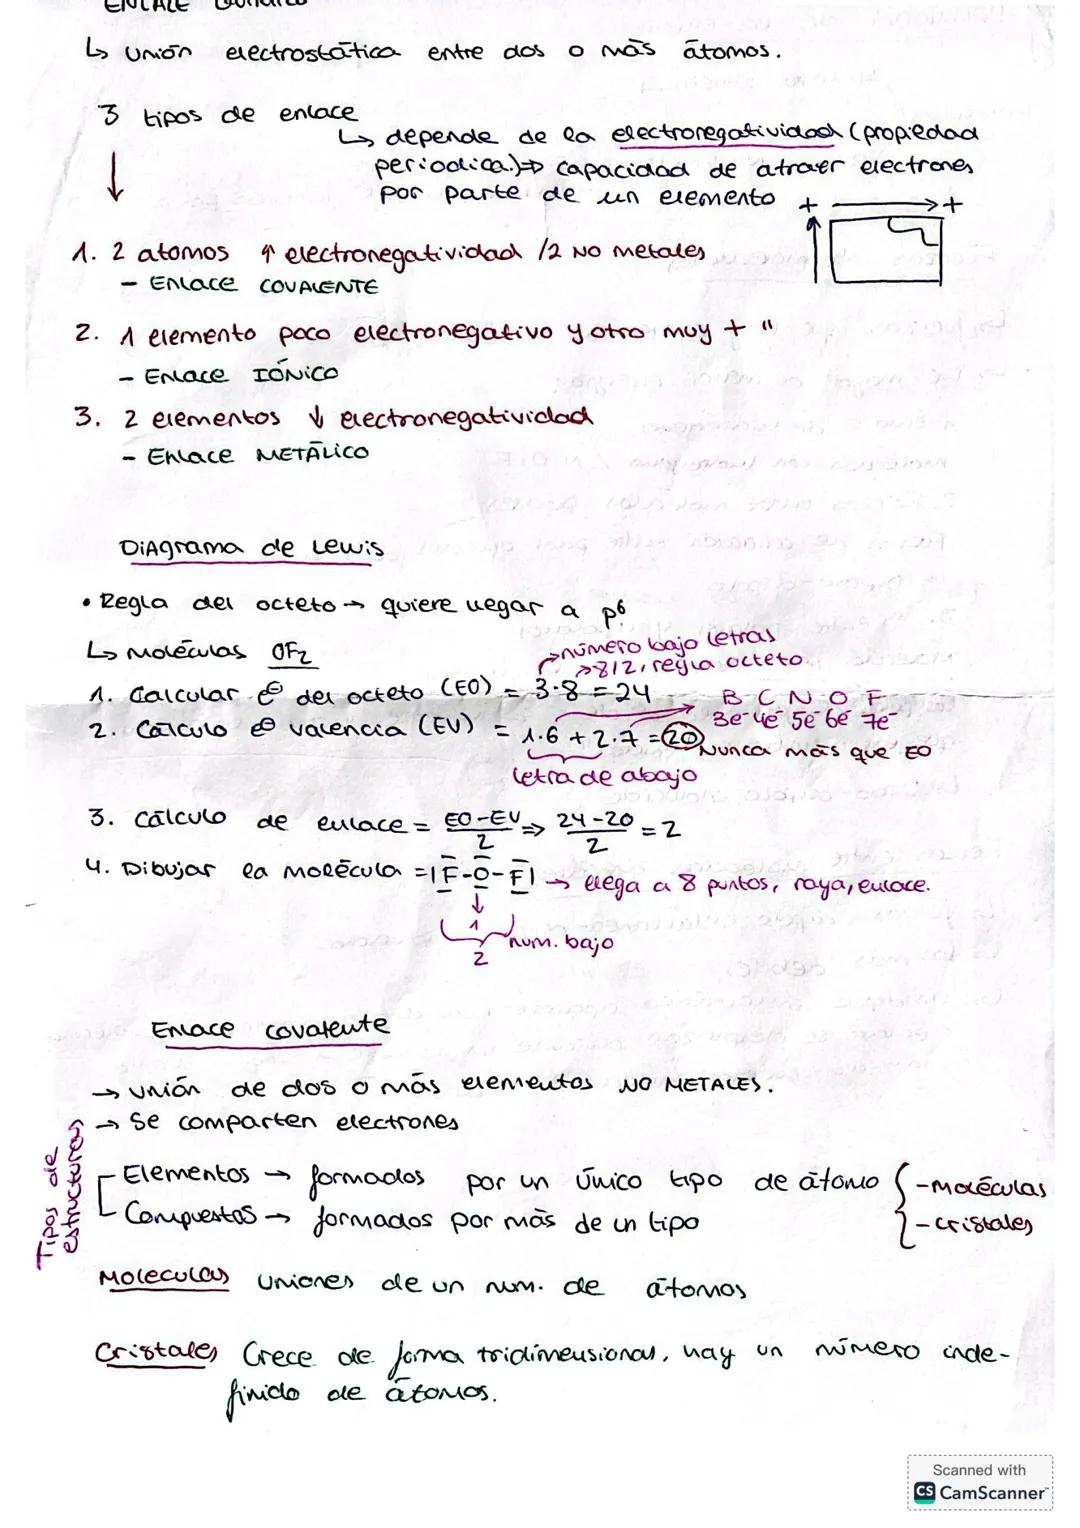 ENLACE QUÍMICO
↳ unión electrostática entre dos o más átomos.
3 tipos de enlace
↳ depende de la electronegatividad (propiedad
periodica.)⇒ capacidad de atraer electrones
por parte de un elemento + → +
1. 2 atomos ↑ electronegatividad /2 NO metales
- Enlace COVALENTE
2. 1 elemento poco electronegativo y otro muy + "
- Enlace IÓNICO
3. 2 elementos ↓ electronegatividad
- Enlace METÁLICO
Diagrama de Lewis
• Regla del octeto → quiere llegar a p⁶
↳ Moléculas OF₂
número bajo letras
>8/2, regla octeto
1. Calcular e⊖ del octeto (EO) = 3·8 = 24
B C N O F
3e⁻ 4e⁻ 5e⁻ 6e⁻ 7e⁻
2. Cálculo e⊖ valencia (EV) = 1·6 + 2·7 = 20 Nunca más que EO
letra de abajo
3. Cálculo de enlace = EO-EV/2 ⇒ 24-20/2 = 2
4. Dibujar la molécula = |F-O-F| → llega a 8 puntos, raya, enlace.
1
2 num. bajo
Enlace covalente
→ unión de dos o más elementos NO METALES.
→ Se comparten electrones
Tipos de estructuras
Elementos → formados por un único tipo de átomo { -moléculas
Compuestos → formados por más de un tipo - cristales
Moleculas Uniones de un num. de átomos
Cristales Crece de forma tridimensional, hay un número inde-
finido de átomos.
Scanned with
CS CamScanner